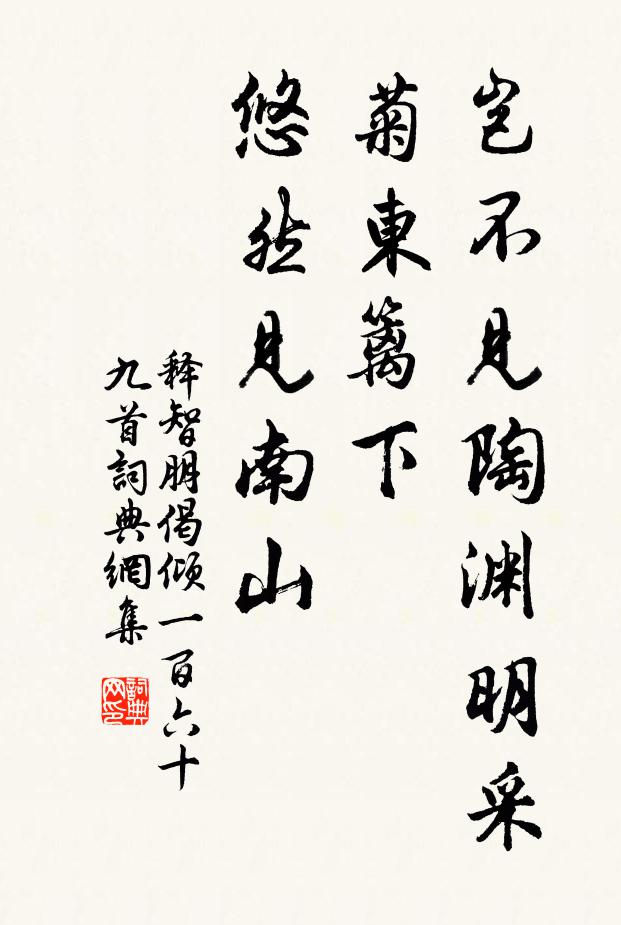 豈不見陶渊明采
菊東籬下
悠然見南山
释智朋偈倾一百六十
九首詞典網集
詞典网印